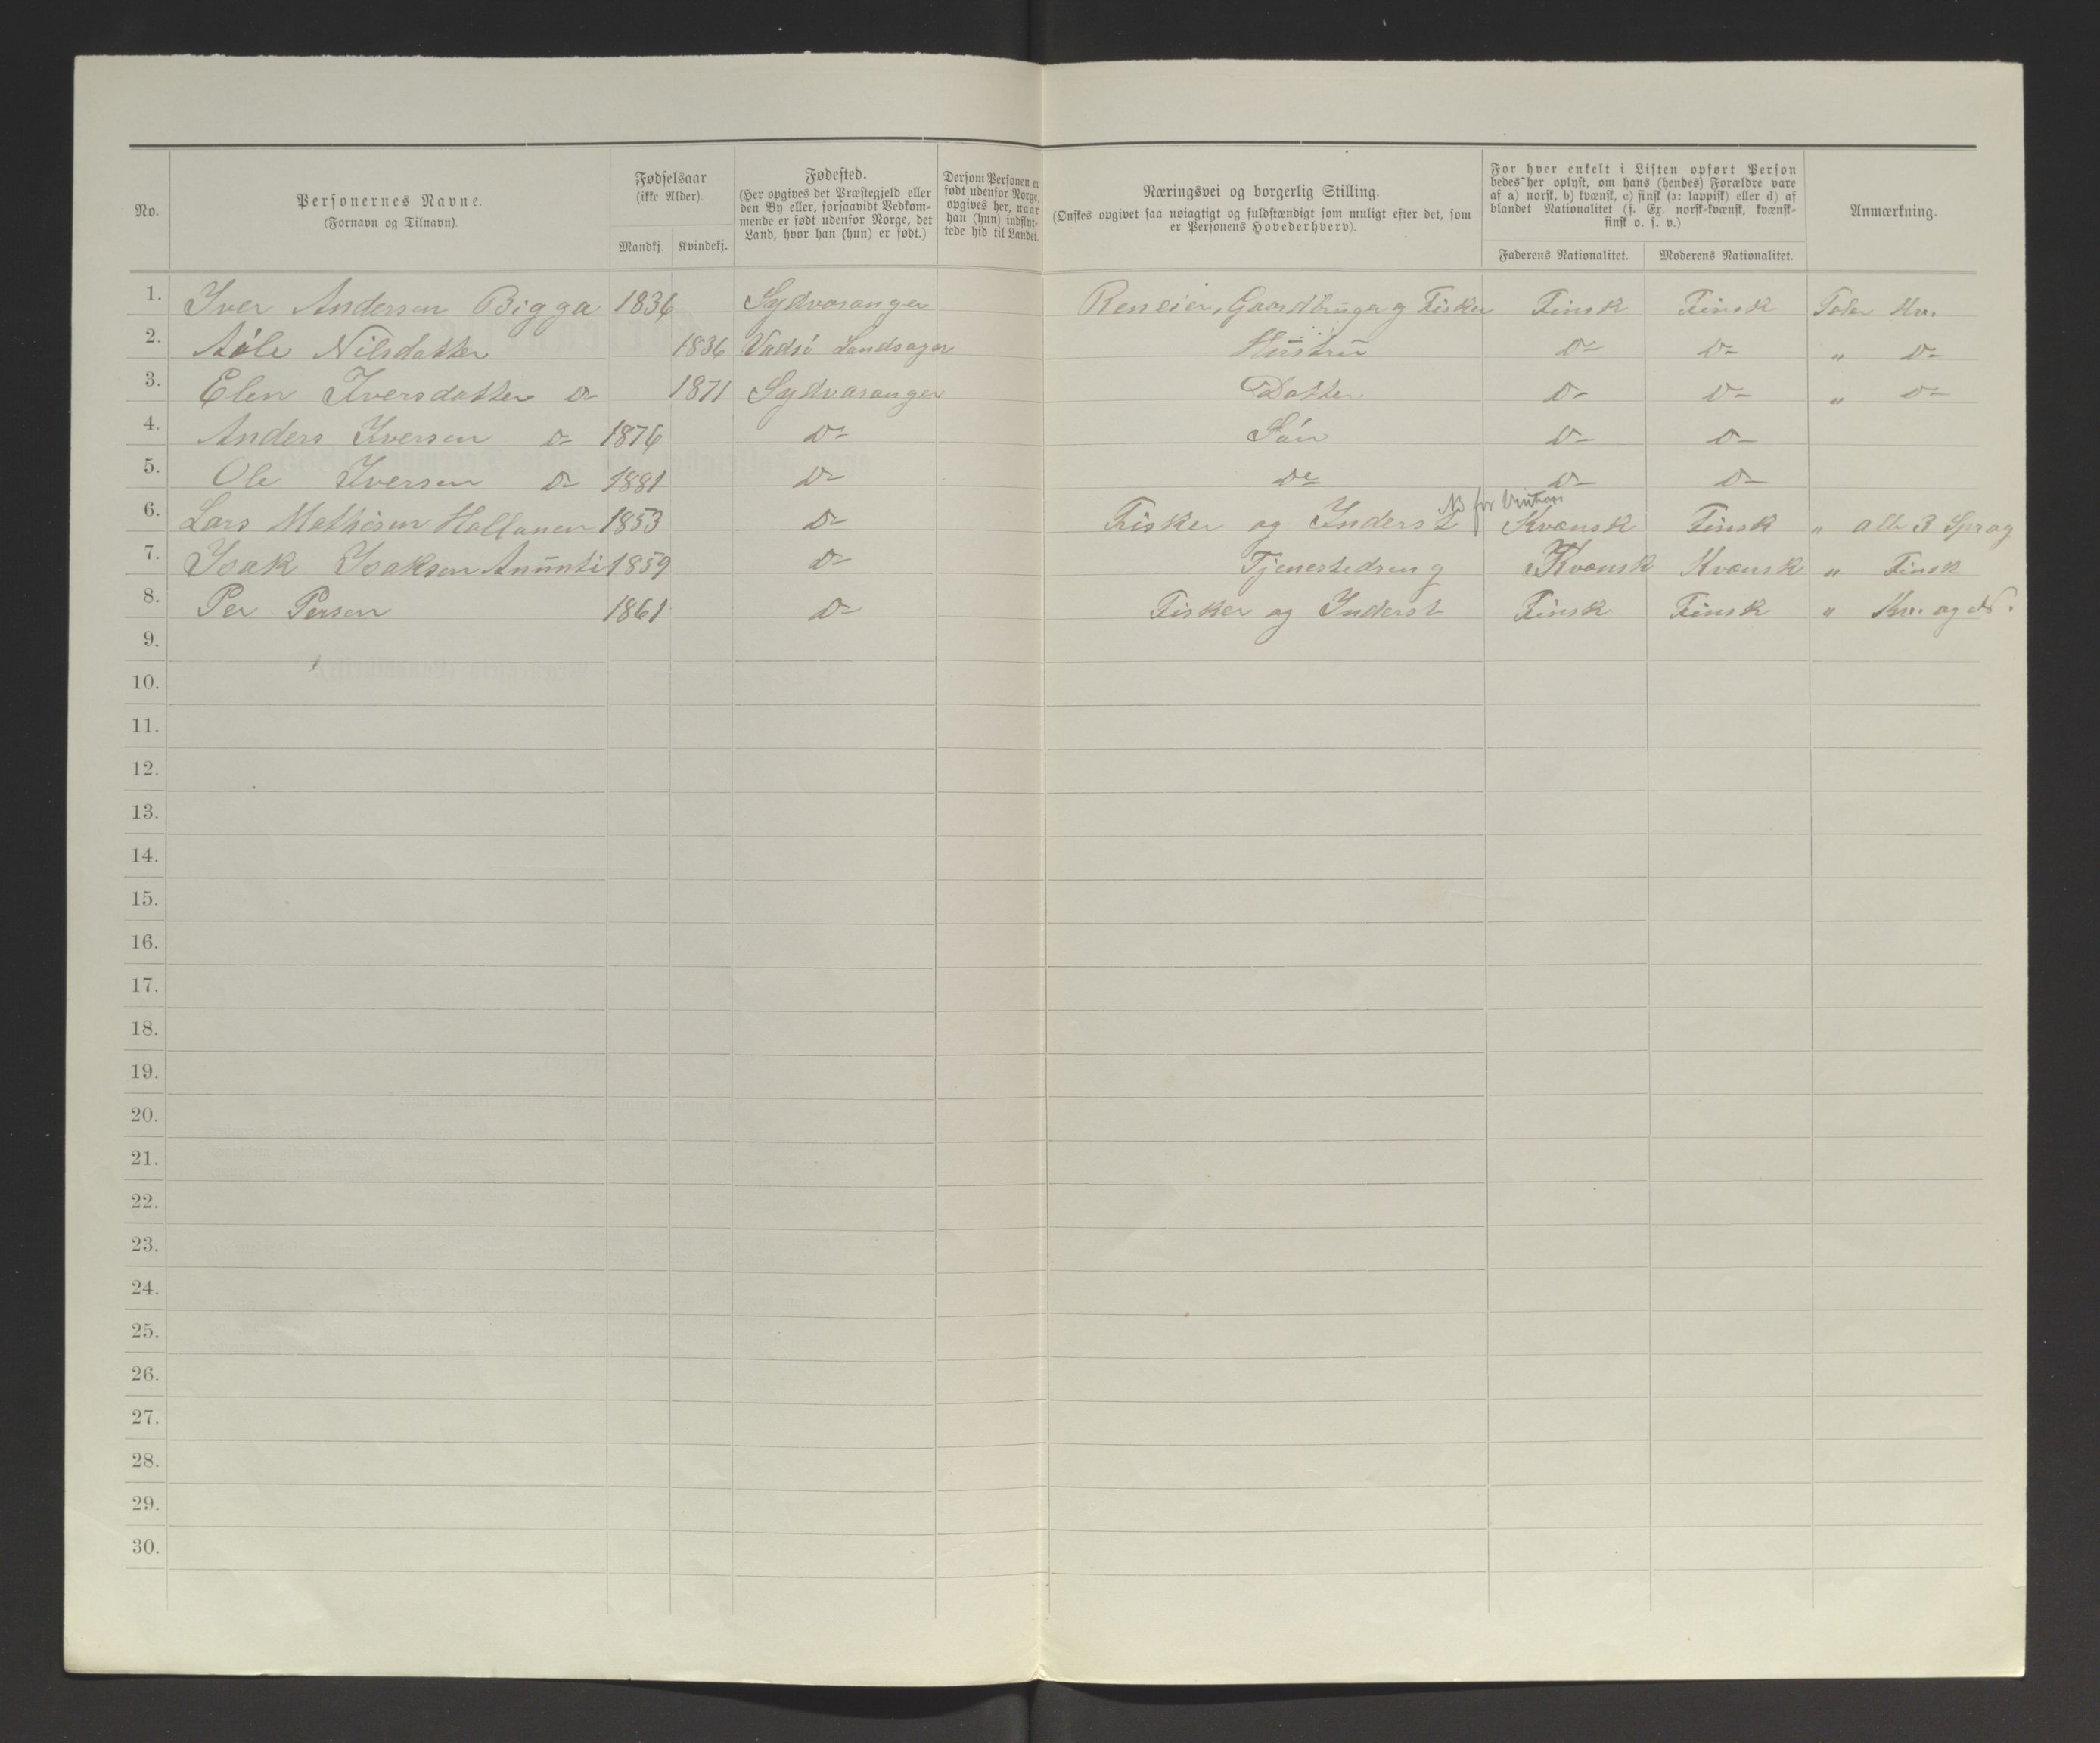 No.
Personernes Navne.
(Fornavn og Tilnavn).
Fødselsaar
(ikke Alder).
Mandkj. Kvindekj.
Fødested.
(Her opgives det Præstegjeld eller
den By eller, forsaavidt Vedkom-
mende er født udenfor Norge, det
Land, hvor han (hun) er født.)
Dersom Personen er
født udenfor Norge,
opgives her, naar
han (hun) indflyt-
tede hid til Landet.
Næringsvei og borgerlig Stilling.
(Ønskes opgivet saa nøiagtigt og fuldstændigt som muligt efter det, som
er Personens Hovederhverv).
For hver enkelt i Listen opført Person
bedes her oplyst, om hans (hendes) Forældre vare
af a) norsk, b) kvænsk, c) finsk (ɔ: lappisk) eller d) af
blandet Nationalitet (f. Ex. norsk-kvænsk, kvænsk-
finsk o. s. v.)
Faderens Nationalitet. Moderens Nationalitet.
Anmærkning.
1. Iver Andersen Bigga 1836 Sydvaranger Reneier, Gaardbruger og Fisker Finsk Finsk Taler Kv.
2. Nilsdatter 1836 Vadsö Landsogn Hustru D- D- " D-
3. Elen Iversdatter D- 1871 Sydvaranger Datter D- D- " D-
4. Anders Iversen D- 1876 D- Sön D- D-
5. Ole Iversen D- 1881 D- D- D- D-
6. Lars Mathisen Hallonen 1853 D- Fisker og Inderst Kvænsk Finsk " alle 3 Sprog
7. Isak Isaksen Anunti 1859 D- Tjenestedreng Kvænsk Kvænsk " Finsk
8. Per Persen 1861 D- Fisker og Inderst Finsk Finsk " Kv. og N.
9.
10.
11.
12.
13.
14.
15.
16.
17.
18.
19.
20.
21.
22.
23.
24.
25.
26.
27.
28.
29.
30.